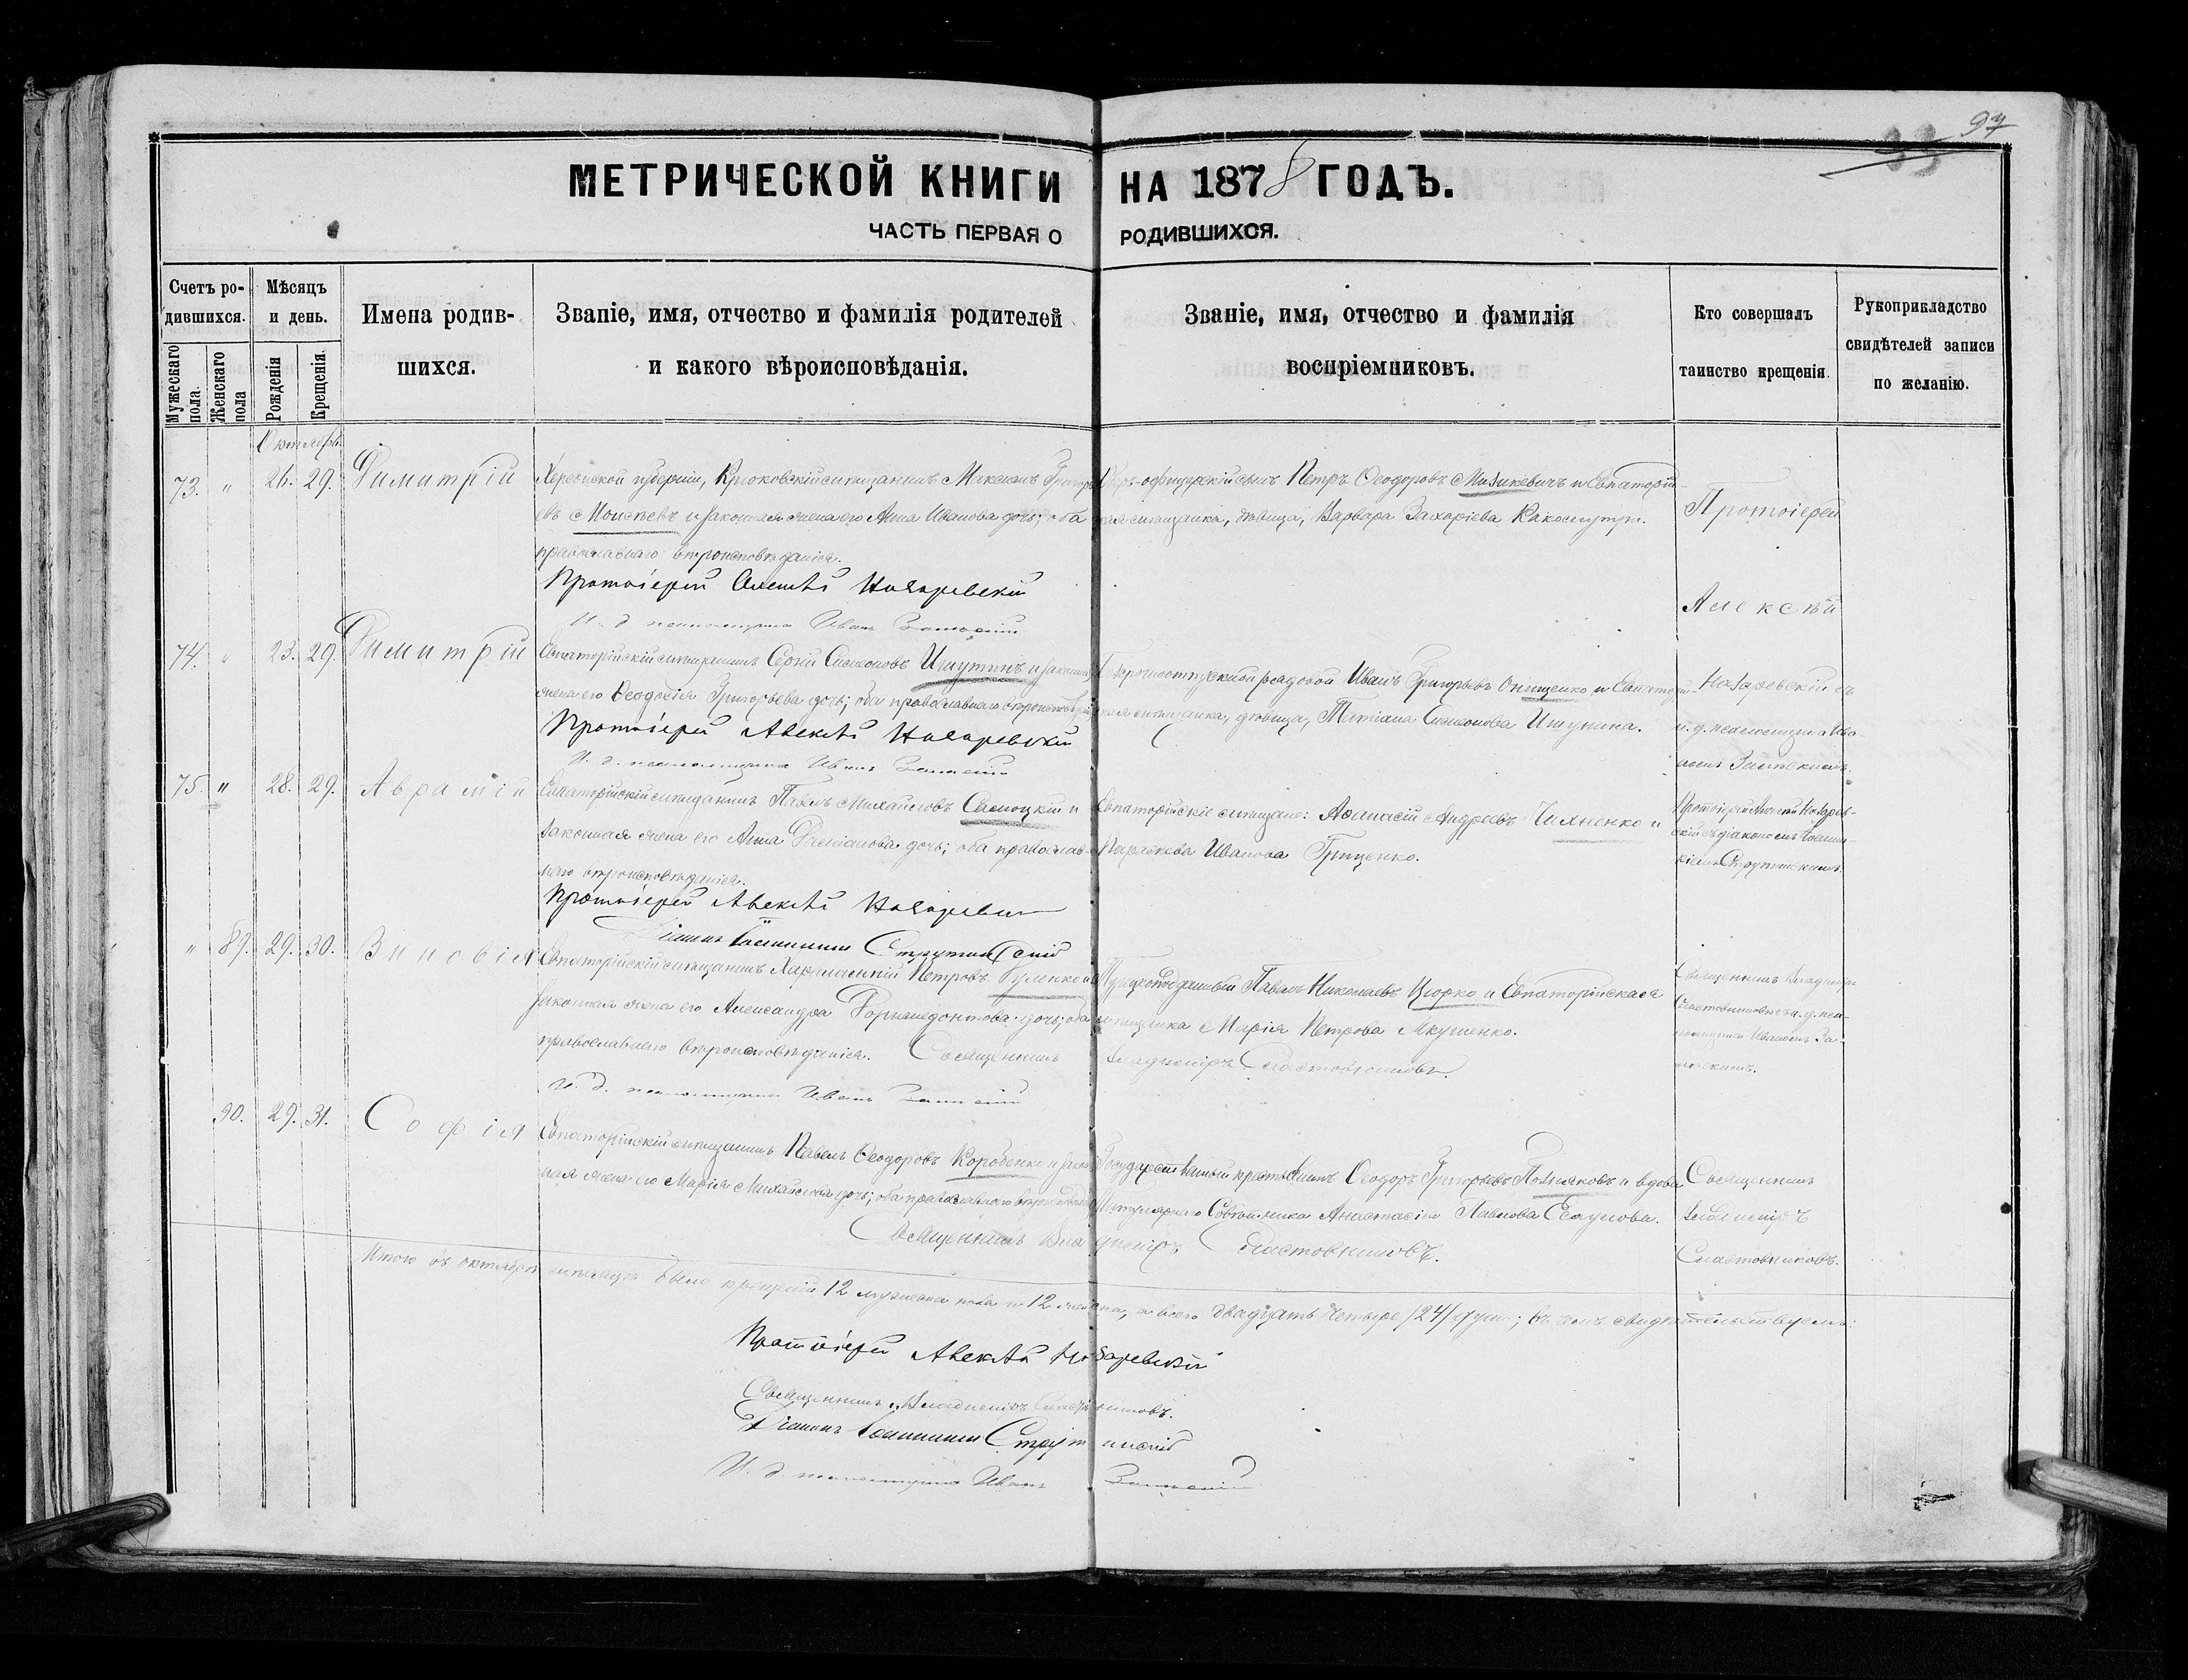 97
33
МЕТРИЧЕСКОЙ КНИГИ НА 1878 ГОДЪ.
ЧАСТЬ ПЕРВАЯ О РОДИВШИХСЯ.
Счетъ ро-
дившихся.
Мужескаго пола.
Женскаго пола
Мѣсяцъ
и день.
Рожденія
Крещенія.
Имена родив-
шихся.
Званіе, имя, отчество и фамилія родителей
и какого вѣроисповѣданія.
Званіе, имя, отчество и фамилія
воспріемниковъ.
Кто совершалъ
таинство крещенія.
Рукоприкладство
свидѣтелей записи
по желанію.
Октябрь
73. " 26. 29. Димитрій
Херсонской губерніи, Крюковскій мѣщанинъ Максимъ Григорь-
евъ Моисѣевъ и законная жена его Анна Иванова дочь; оба
православнаго вѣроисповѣданія.
Протоіерей Алексѣй Назаревскій
И. д. псаломщика Иванъ
Оберъ-офицерскій сынъ Петръ Ѳеодоровъ Мизикевичъ и Евпаторій-
ская мѣщанка, дѣвица, Варвара Захаріева
Протоіерей
Алексѣй
Назаревскій съ
и. д. псаломщика Ива-
номъ
74. " 23. 29. Димитрій
Евпаторійскій мѣщанинъ Сергій Симоновъ Ишутинъ и законная
жена его Ѳеодосія Григорьева дочь; оба православнаго вѣроисповѣданія
Протоіерей Алексѣй Назаревскій
И. д. псаломщика Иванъ
рядовой Иванъ Григорьевъ Онищенко и Евпаторій-
ская мѣщанка, дѣвица, Татіана Симонова Ишутина.
75. " 28. 29. Аврамій
Евпаторійскій мѣщанинъ Павелъ Михайловъ и
законная жена его Анна дочь; оба православ-
наго вѣроисповѣданія.
Протоіерей Алексѣй Назаревскій
Діаконъ Іоанникій Струтинскій
Евпаторійскіе мѣщане: Аѳанасій Андреевъ Чихненко и
Параскева Иванова Гриценко.
Протоіерей Алексѣй Назарев-
скій съ діакономъ Іоанни-
кіемъ Струтинскимъ.
" 89. 29. 30. Зиновія
Евпаторійскій мѣщанинъ Харлампій Петровъ Руленко и
законная жена его Александра дочь; оба
православнаго вѣроисповѣданія. Священникъ Владиміръ Сластовниковъ.
И. д. псаломщика Иванъ
Турецкоподданный Павелъ Николаевъ Цюрко и Евпаторійская
мѣщанка Марія Петрова Якушенко.
Священникъ Владиміръ
Сластовниковъ съ и. д. пса-
ломщика Иваномъ
90. 29. 31. Софія
Евпаторійскій мѣщанинъ Павелъ Ѳеодоровъ Коробенко и закон-
ная жена его Марія Михайлова дочь; оба православнаго вѣроисповѣданія
Священникъ Владиміръ Сластовниковъ.
Государственный крестьянинъ Ѳеодоръ Григорьевъ Позняковъ и вдова
Титулярнаго Совѣтника Анастасія Павлова Есаулова.
Священникъ
Владиміръ
Сластовниковъ.
Итого въ октябрѣ мѣсяцѣ было крещеній 12 мужеска пола и 12 женска, а всего двадцать четыре /24/ душъ; въ чемъ свидѣтельствуемъ:
Протоіерей Алексѣй Назаревскій
Священникъ Владиміръ Сластовниковъ.
Діаконъ Іоанникій Струтинскій
И. д. псаломщика Иванъ